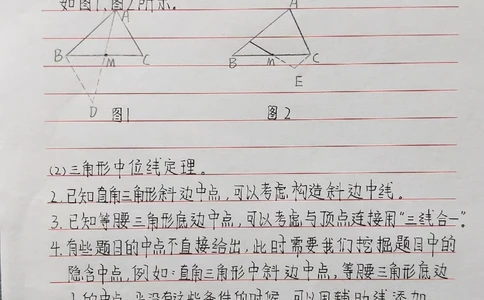 如图1、图2所示。
A
B
M
C
D
图1
A
B
M
C
E
图2
(2)三角形中位线定理。
2.已知直角三角形斜边中点,可以考虑构造斜边中线。
3.已知等腰三角形底边中点,可以考虑与顶点连接用“三线合一”。
4.有些题目的中点不直接给出,此时需要我们挖掘题目中的
隐含中点,例如:直角三角形中斜边中点,等腰三角形底边
上的中点,当没有这些条件的时候,可以用辅助线添加